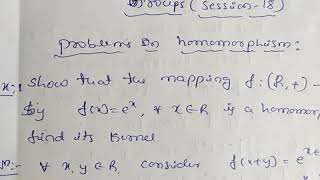 Groups (Session-18)
problems on homomorphism:
Show that the mapping f: (R, +) -
by f(x) = e^x, ∀ x ∈ R is a homomor
find its Kernel
∀ x, y ∈ R, consider f(x+y) = e^x+